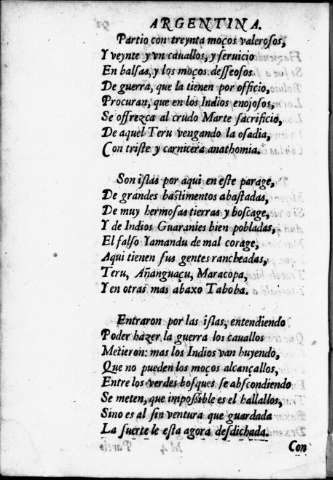 ARGENTINA.
Partio con treynta moços valerosos,
Y veynte y vn cauallos, y seruicio
En balsas, y los moços desseosos
De guerra, que la tienen por officio,
Procuran, que en los Indios enojosos,
Se offrezca al crudo Marte sacrificio,
De aquel Teru vengando la osadia,
Con triste y carnicera anathomia.
Son islas por aqui en este parage,
De grandes bastimentos abastadas,
De muy hermosas tierras y boscage,
Y de Indios Guaranies bien pobladas,
El falso Yamandu de mal corage,
Aqui tienen sus gentes rancheadas,
Teru, Añanguaçu, Maracopa,
Y en otras mas abaxo Taboba.
Entraron por las islas, entendiendo
Poder hazer la guerra los cauallos
Metieron: mas los Indios van huyendo,
Que no pueden los moços alcançallos,
Entre los verdes bosques se abscondiendo
Se meten, que impossible es el hallallos,
Sino es al fin ventura que guardada
La suerte le esta agora desdichada.
Con